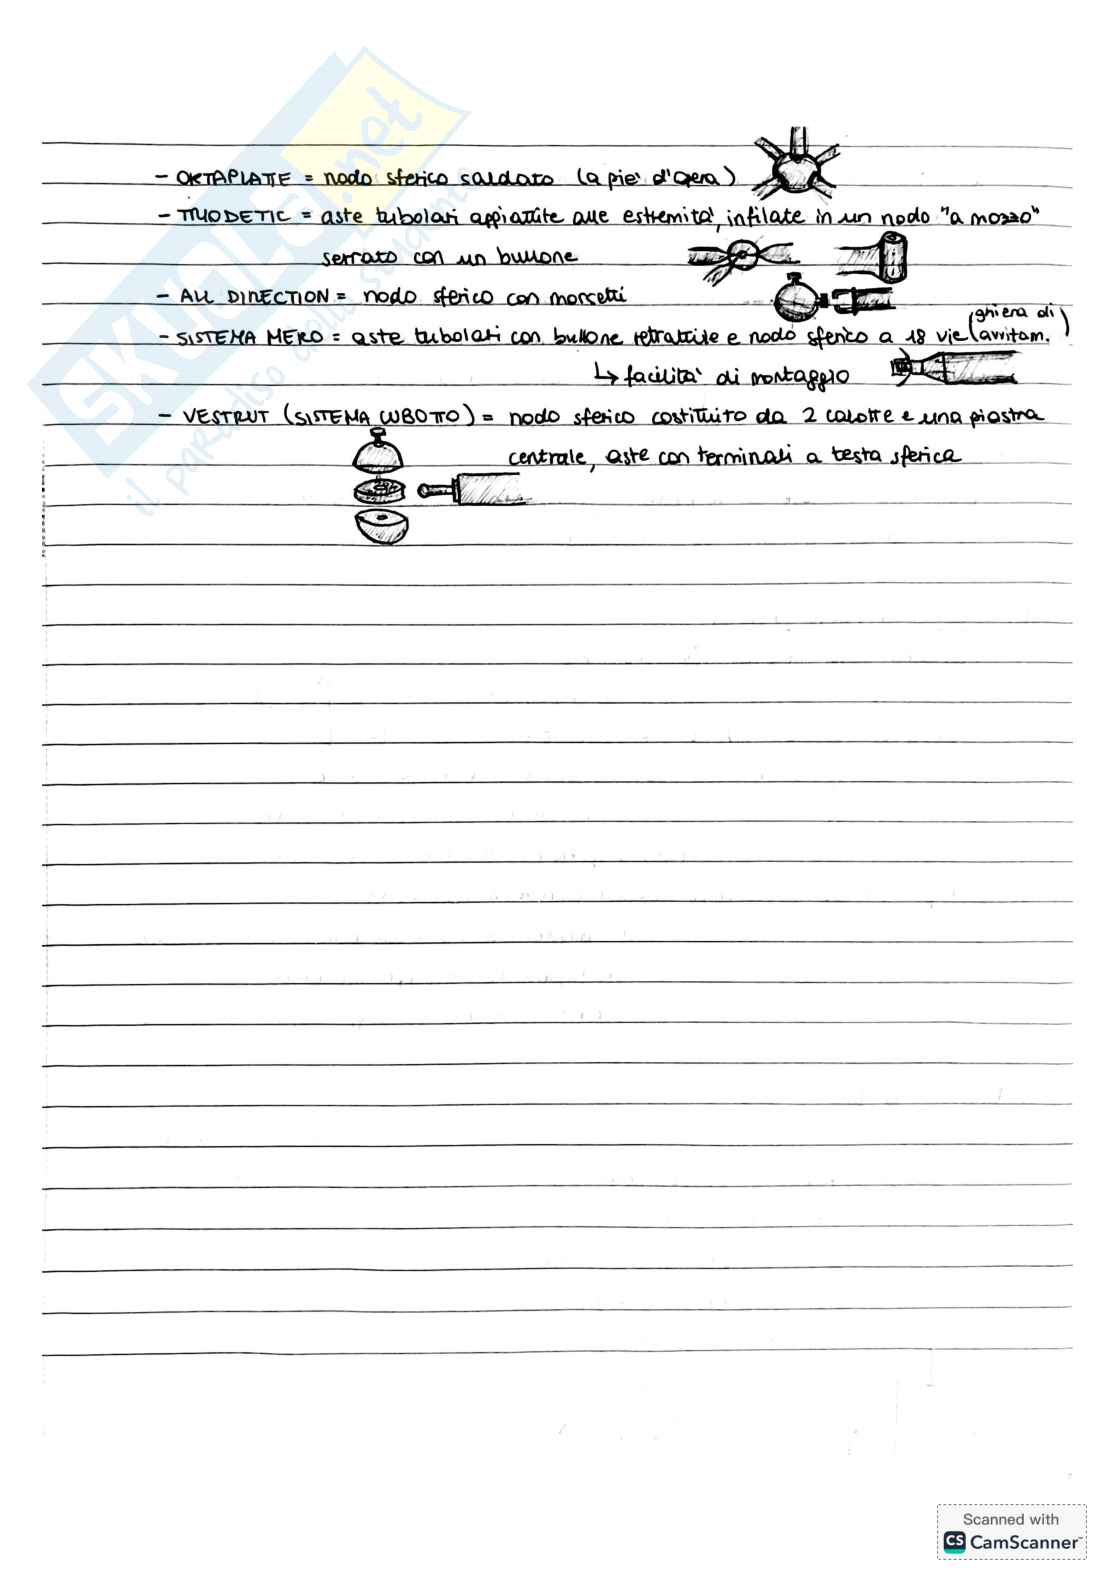 - OKTAPLATTE = nodo sferico saldato (a piè d'opera)
- TRIODETIC = aste tubolari appiattite alle estremità, infilate in un nodo "a mozzo"
serrato con un bullone
- ALL DIRECTION = nodo sferico con morsetti
- SISTEMA MERO = aste tubolari con bullone retrattile e nodo sferico a 18 vie (ghiera di avvitam.)
↳ facilità di montaggio
- VESTRUT (SISTEMA CUBOTTO) = nodo sferico costituito da 2 calotte e una piastra
centrale, aste con terminali a testa sferica
SKUOLA.net
il paradiso dello studente
Scanned with
CS CamScanner